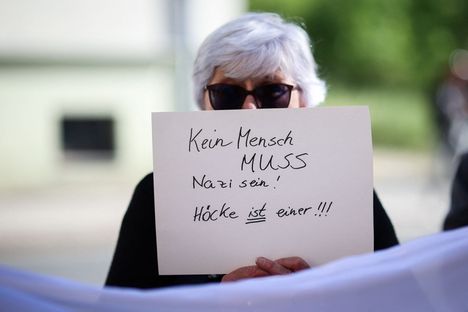 Kein Mensch
MUSS
Nazi sein!
Höcke ist einer!!!